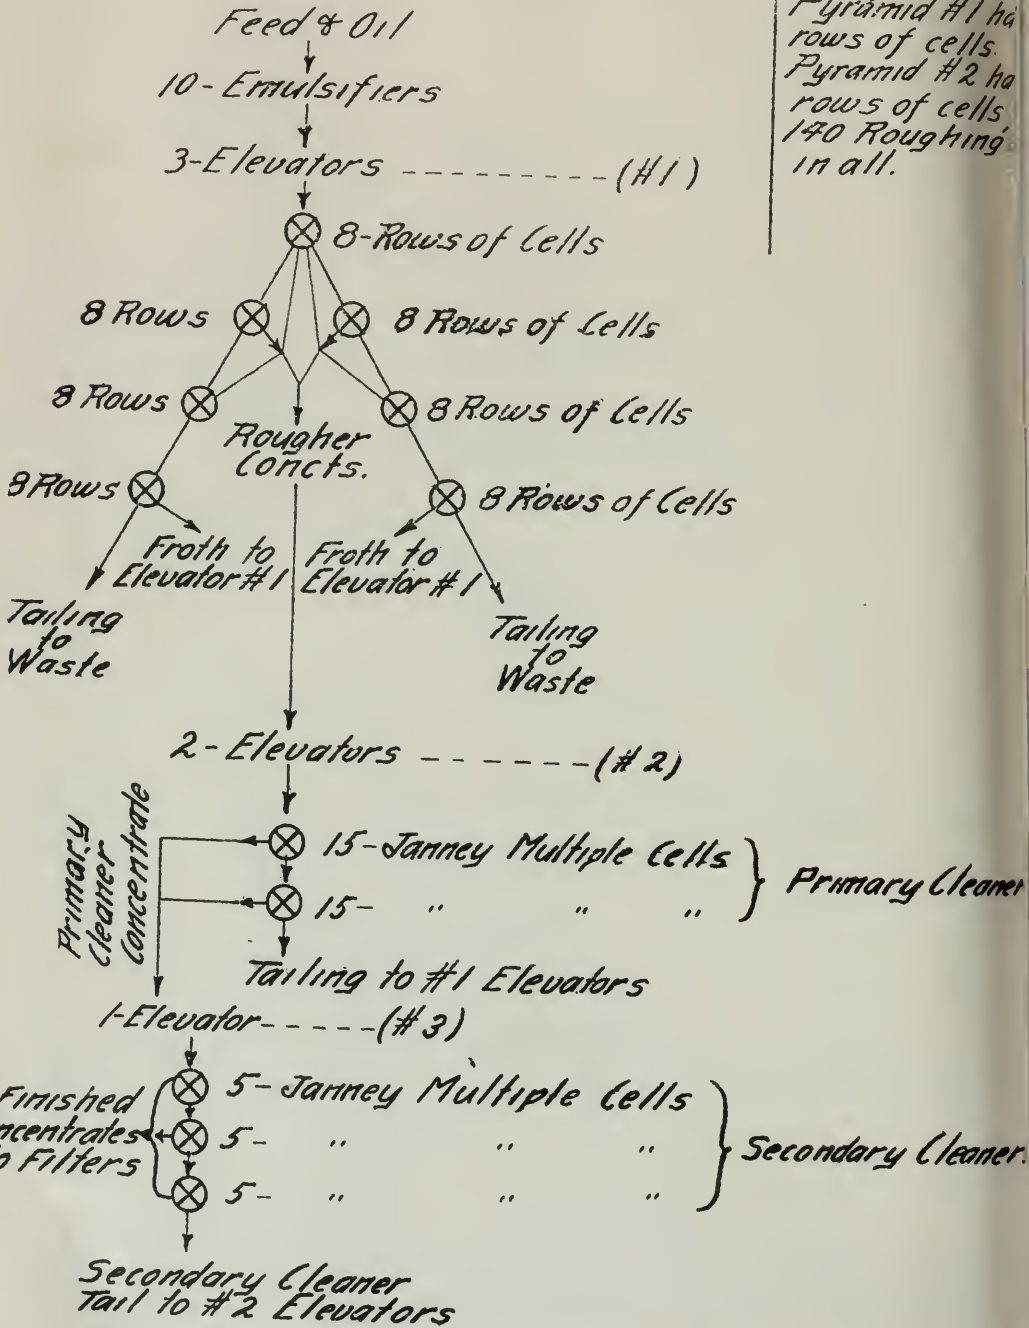 Feed & Oil
10-Emulsifiers
3-Elevators ------------ (#1)
8-Rows of Cells
8 Rows
8 Rows of Cells
8 Rows
8 Rows of Cells
Rougher
Concts.
8 Rows
8 Rows of Cells
Froth to
Elevator #1
Froth to
Elevator #1
Tailing
to
Waste
Tailing
to
Waste
2-Elevators ------- (#2)
Primary
Cleaner
Concentrate
15-Janney Multiple Cells
15- " " "
Primary Cleaner
Tailing to #1 Elevators
1-Elevator ----- (#3)
5-Janney Multiple Cells
5- " " "
5- " " "
Secondary Cleaner.
Finished
oncentrates
o Filters
Secondary Cleaner
Tail to #2 Elevators
Pyramid #1 ha
rows of cells.
Pyramid #2 ha
rows of cells
140 Roughing
in all.